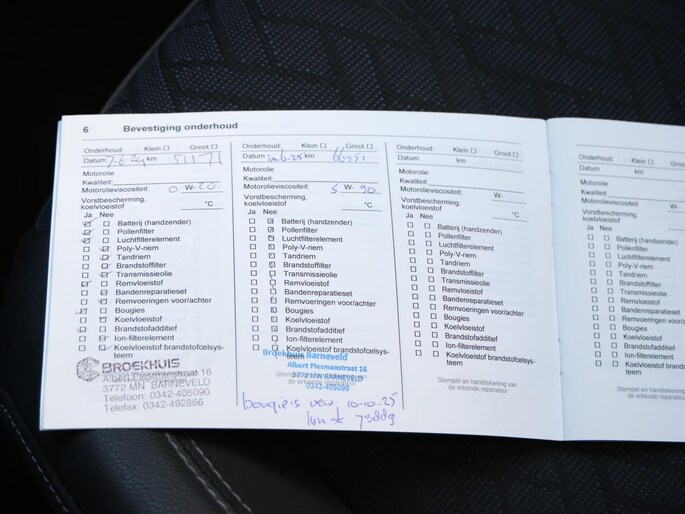 6 Bevestiging onderhoud
Onderhoud: Klein Groot
Datum 7-6-24 km 51171
Motorolie
Kwaliteit:
Motorolieviscositeit: 0 W- 20
Vorstbescherming, °C
koelvloeistof
Ja Nee
Batterij (handzender)
Pollenfilter
Luchtfilterelement
Poly-V-riem
Tandriem
Brandstoffilter
Transmissieolie
Remvloeistof
Bandenreparatieset
Remvoeringen voor/achter
Bougies
Koelvloeistof
Brandstofadditief
Ion-filterelement
Koelvloeistof brandstofcelsys-
teem
BROEKHUIS
Albert Plesmanstraat 16
3772 MN BARNEVELD
Telefoon: 0342-405090
Telefax: 0342-492866
Onderhoud: Klein Groot
Datum 6-25 km
Motorolie
Kwaliteit:
Motorolieviscositeit: 5 W- 30
Vorstbescherming, °C
koelvloeistof
Ja Nee
Batterij (handzender)
Pollenfilter
Luchtfilterelement
Poly-V-riem
Tandriem
Brandstoffilter
Transmissieolie
Remvloeistof
Bandenreparatieset
Remvoeringen voor/achter
Bougies
Koelvloeistof
Brandstofadditief
Ion-filterelement
Koelvloeistof brandstofcelsys-
teem
Broekhuis Barneveld
Albert Plesmanstraat 16
3772 MN BARNEVELD
0342-405090
Stempel en handtekening van
de erkende reparateur
10-10-25
Onderhoud: Klein Groot
Datum km
Motorolie
Kwaliteit:
Motorolieviscositeit: W-
Vorstbescherming, °C
koelvloeistof
Ja Nee
Batterij (handzender)
Pollenfilter
Luchtfilterelement
Poly-V-riem
Tandriem
Brandstoffilter
Transmissieolie
Remvloeistof
Bandenreparatieset
Remvoeringen voor/achter
Bougies
Koelvloeistof
Brandstofadditief
Ion-filterelement
Koelvloeistof brandstofcelsys-
teem
Stempel en handtekening van
de erkende reparateur
Onderhoud: Klein
Datum km
Motorolie
Kwaliteit:
Motorolieviscositeit:
Vorstbescherming,
koelvloeistof
Ja Nee
Batterij (handzender)
Pollenfilter
Luchtfilterelement
Poly-V-riem
Tandriem
Brandstoffilter
Transmissieolie
Remvloeistof
Bandenreparatieset
Remvoeringen voor/achter
Bougies
Koelvloeistof
Brandstofadditief
Ion-filterelement
Koelvloeistof brandstofcelsys-
teem
Stempel en handtekening van
de erkende reparateur